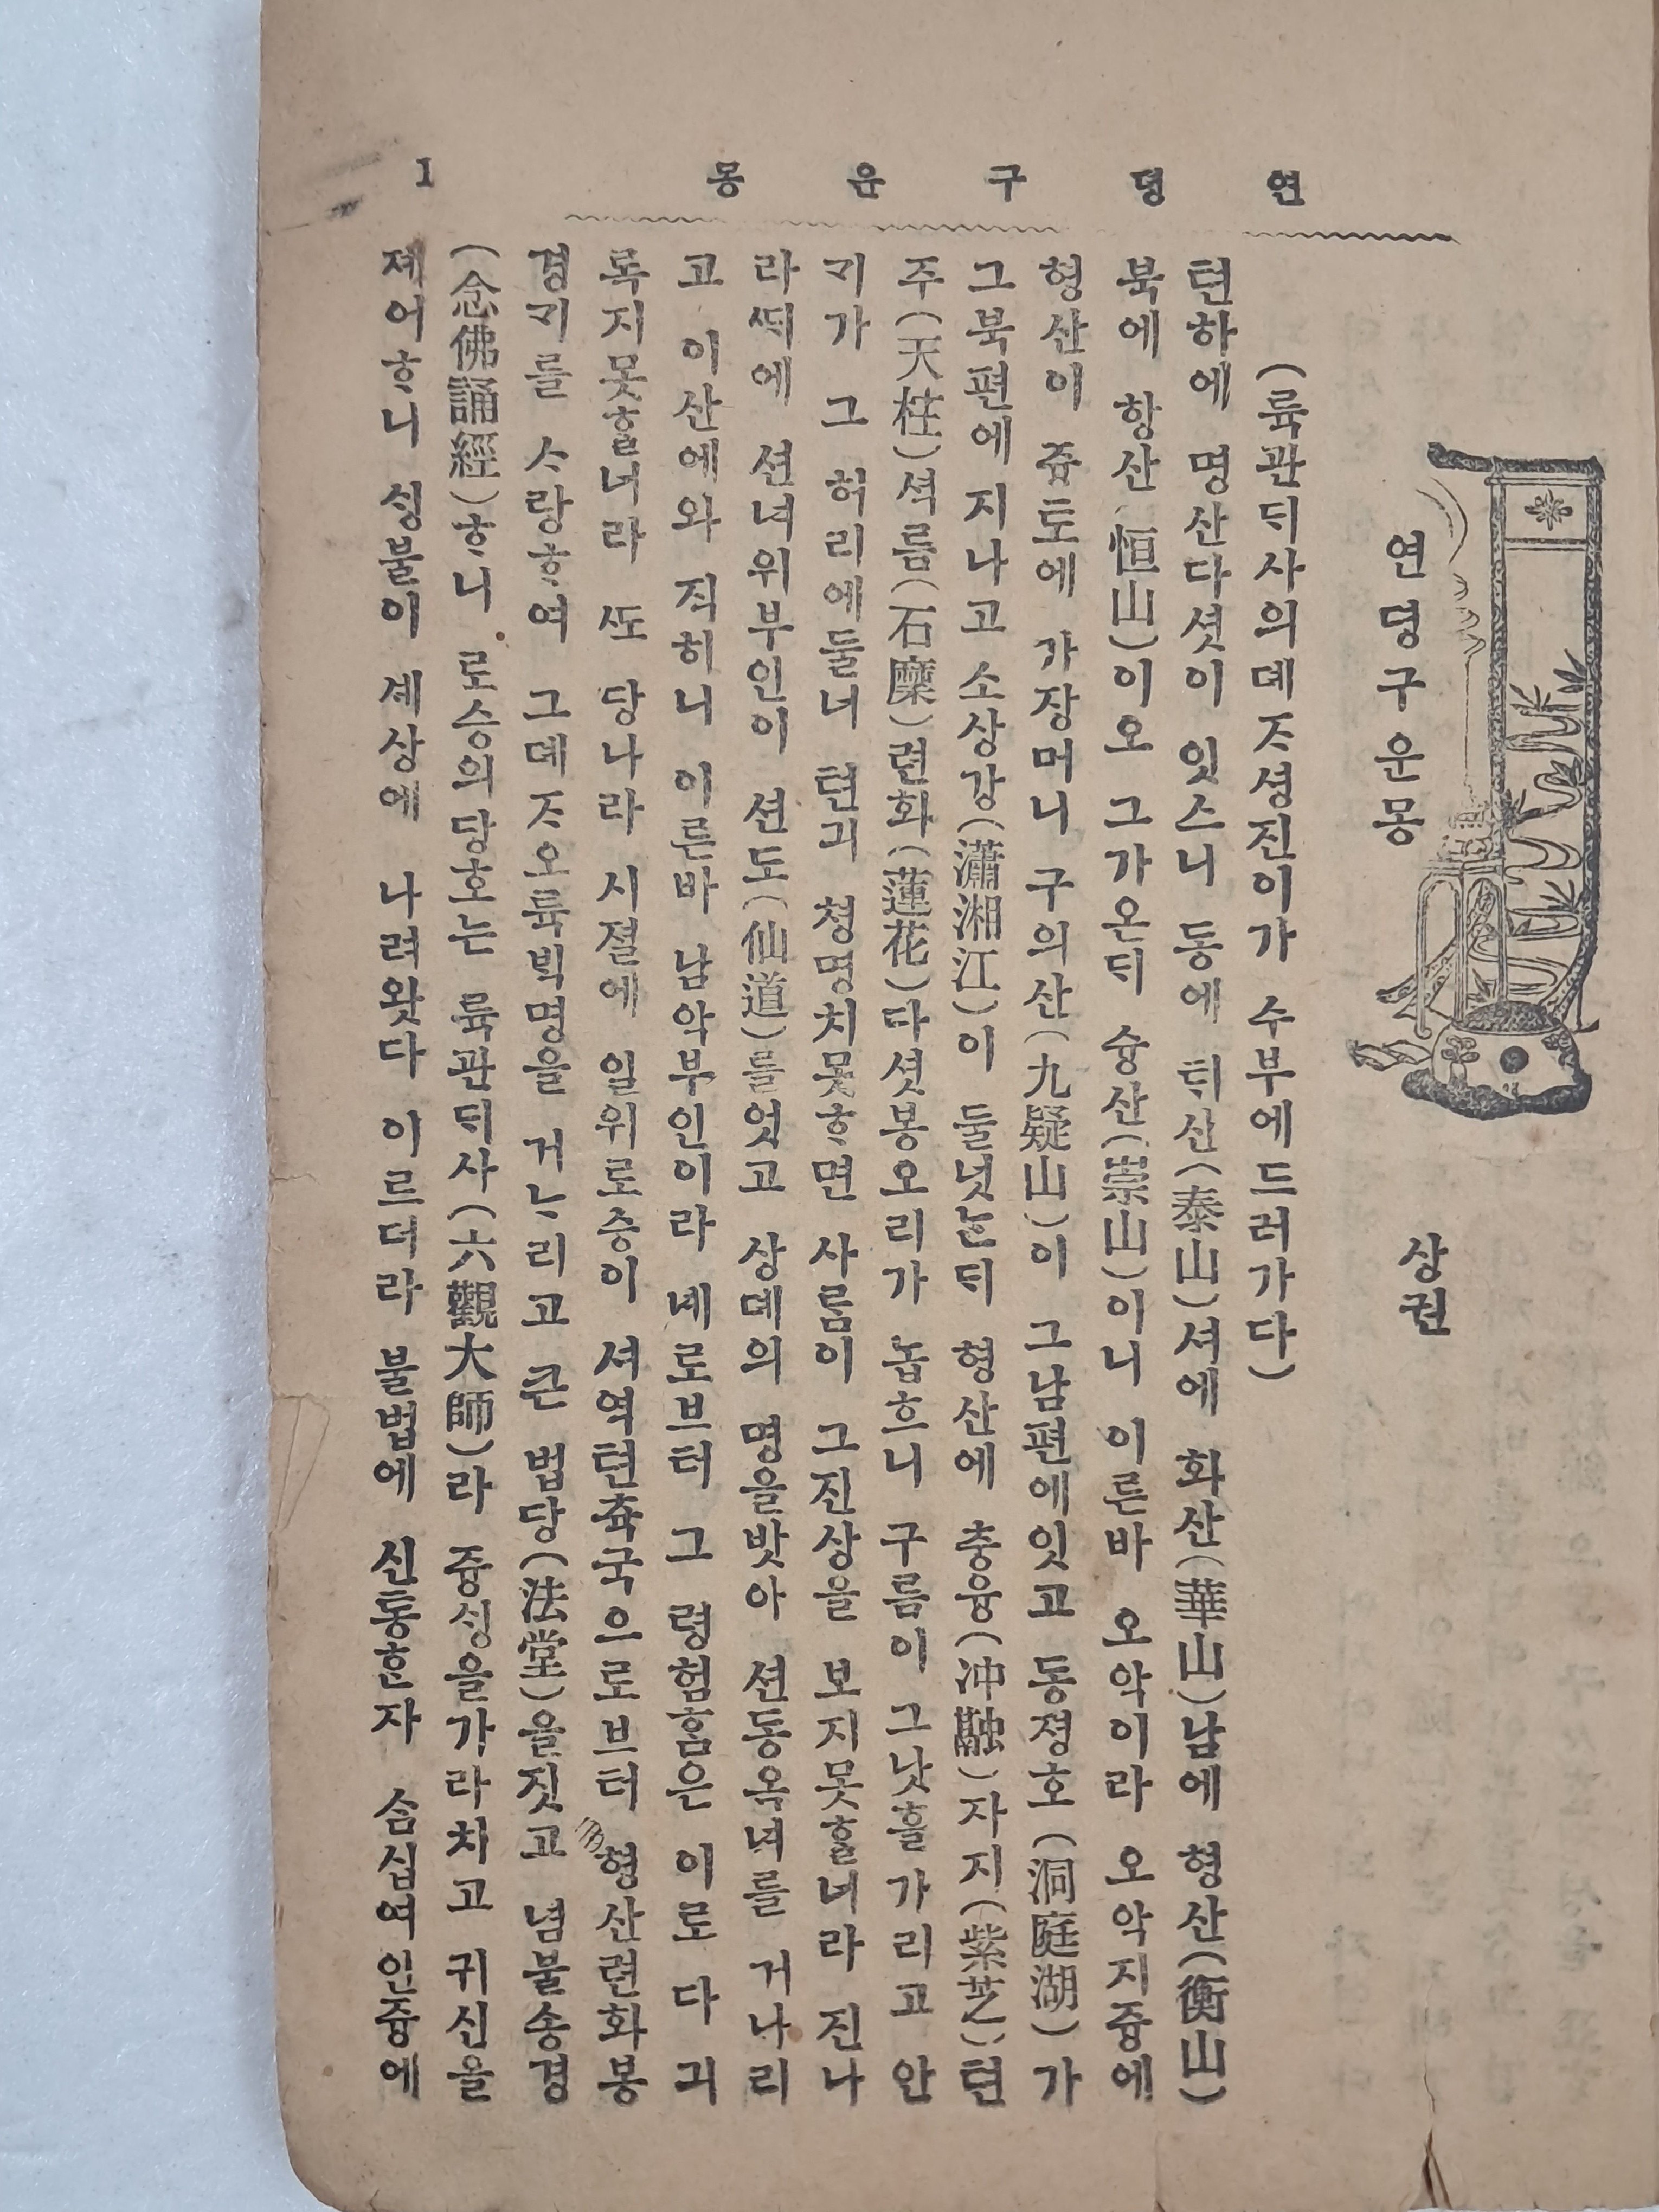 연뎡구운몽
연뎡구운몽 상권
(륙관ᄃᆡ사의뎨ᄌᆞ셩진이가 수부에드러가다)
텬하에 명산다셧이 잇스니 동에 ᄐᆡ산(泰山)셔에 화산(華山)남에 형산(衡山)
북에 항산(恒山)이오 그가온ᄃᆡ 숭산(崇山)이니 이른바 오악이라 오악지즁에
형산이 즁도에 가장머니 구의산(九疑山)이 그남편에잇고 동졍호(洞庭湖)가
그북편에 지나고 소상강(瀟湘江)이 둘녓ᄂᆞᆫᄃᆡ 형산에 츙융(冲融)자지(紫芝)텬
주(天柱)셕름(石廩)련화(蓮花)다셧봉오리가 놉흐니 구름이 그낫흘가리고 안
ᄀᆡ가 그 허리에둘너 텬긔 쳥명치못ᄒᆞ면 사ᄅᆞᆷ이 그진상을 보지못ᄒᆞᆯ녀라 진나
라ᄯᅢ에 션녀위부인이 션도(仙道)를엇고 상뎨의 명을밧아 션동옥녀를 거나리
고 이산에와 직히니 이른바 남악부인이라 녜로브터 그 령험홈은 이로 다 긔
록지못ᄒᆞᆯ너라 ᄯᅩ 당나라 시졀에 일위로승이 셔역텬츅국으로브터 형산련화봉
경ᄀᆡ를 ᄉᆞ랑ᄒᆞ여 그뎨ᄌᆞ오륙ᄇᆡᆨ명을 거ᄂᆞ리고 큰 법당(法堂)을짓고 념불숑경
(念佛誦經)ᄒᆞ니 로승의당호는 륙관ᄃᆡ사(六觀大師)라 즁ᄉᆡᆼ을가라치고 귀신을
졔어ᄒᆞ니 ᄉᆡᆼ불이 셰상에 나려왓다 이르더라 불법에 신통ᄒᆞᆫ자 삼십여인즁에
1